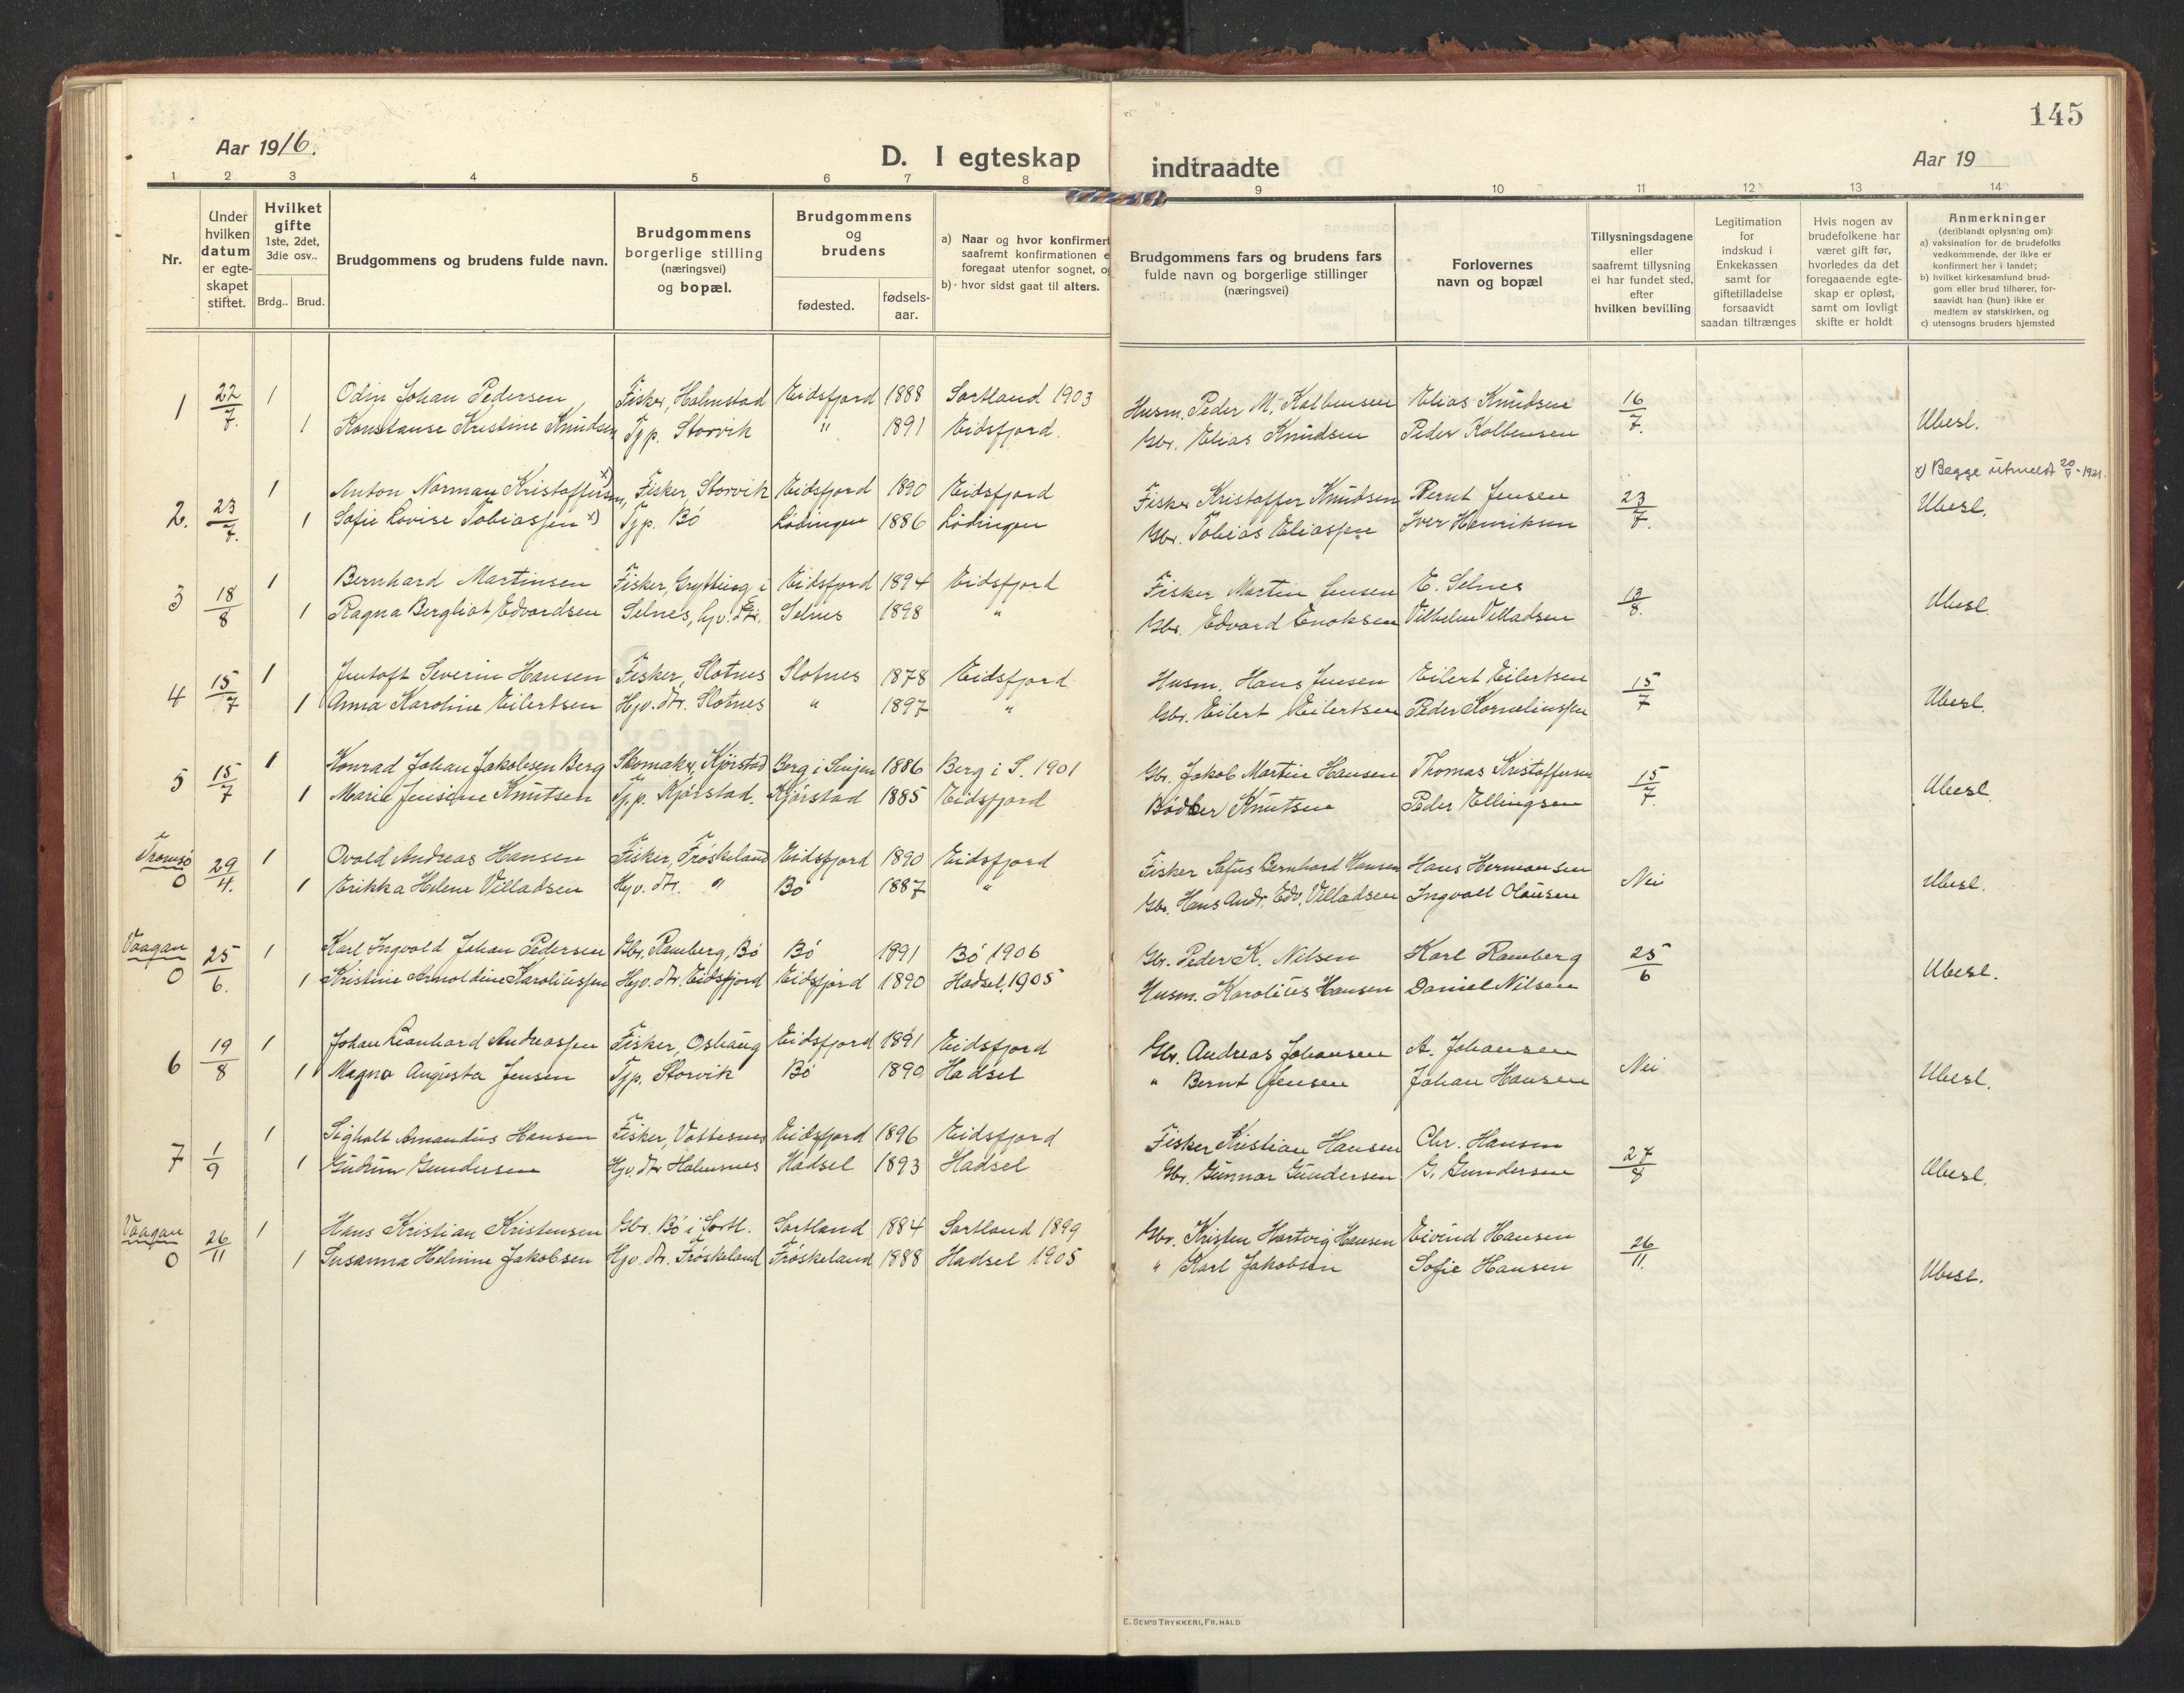 145
Aar 1916.
D. I egteskap indtraadte
Aar 19
1 2 3 4 5 6 7 8 9 10 11 12 13 14
Nr.
Under hvilken datum er egteskapet stiftet.
Hvilket gifte 1ste, 2det, 3die osv..
Brdg.. Brud.
Brudgommens og brudens fulde navn.
Brudgommens borgerlige stilling (næringsvei) og bopæl.
Brudgommens og brudens
fødested. fødsels-aar.
a) Naar og hvor konfirmert saafremt konfirmationen foregaat utenfor sognet,
b) hvor sidst gaat til alters.
Brudgommens fars og brudens fars fulde navn og borgerlige stillinger (næringsvei)
Forlovernes navn og bopæl
Tillysningsdagene eller saafremt tillysning ei har fundet sted, efter hvilken bevilling
Legitimation for indskud i Enkekassen samt for giftetilladelse forsaavidt saadan tiltrænges
Hvis nogen av brudefolkene har været gift før, hvorledes da det foregaaende egteskap er opløst, samt om lovligt skifte er holdt
Anmerkninger (deriblandt oplysning om): a) vaksination for de brudefolks vedkommende, der ikke er konfirmert her i landet; b) hvilket kirkesamfund brudgom eller brud tilhører, forsaavidt han (hun) ikke er medlem av statskirken, og c) utensogns bruders hjemsted
1 22/7. 1 Odin Johan Pedersen Fisker, Holmstad Eidsfjord 1888 Sortland 1903 Husm. Peder M. Kolbensen Elias Knudsen 16/7.
1 Konstanse Kristine Knudsen Tjp. Storvik " 1891 Eidsfjord. Gbr. Elias Knudsen Peder Kolbensen Ubesl.
x) Begge utmeldt 20/V - 1921.
2. 23/7. 1 Anton Norman Kristoffersen, x) Fisker, Storvik Eidsfjord 1890 Eidsfjord Fisker Kristoffer Knudsen Bernt Jensen 23/7. Ubesl.
1 Sofie Lovise Tobiassen x) Tjp. Bö Lødingen 1886 Lødingen Gbr. Tobias Eliassen Iver Henriksen
3 18/8 1 Bernhard Martinsen Fisker, Grytting i Eidsfjord 1894 Eidsfjord Fisker Martin Jensen E. Selnes 13/8. Ubesl.
1 Ragna Bergliot Edvardsen Selnes, hjv. dtr. Selnes 1898 " Gbr. Edvard Enoksen Vilhelm Villadsen
4 15/7 1 Jentoft Severin Hansen Fisker, Slotnes Slotnes 1878 Eidsfjord Husm. Hans Jensen Eilert Eilertsen 15/7
1 Anna Karoline Eilertsen Hjv. dtr. Slotnes " 1897 " Gbr. Eilert Eilertsen Peder Korneliussen Ubesl.
5 15/7 1 Konrad Johan Jakobsen Berg Skomaker, Kjörstad Berg i Senjen 1886 Berg i S. 1901 Gbr. Jakob Martin Hansen Thomas Kristoffersen 15/7.
1 Marie Jensine Knutsen Tjp. Kjörstad. Kjörstad 1885 Eidsfjord Bödker Knutsen Peder Ellingsen Ubesl.
Tromsö 0 29/4. 1 Ovald Andreas Hansen Fisker, Fröskeland Eidsfjord 1890 Eidsfjord Fisker Sofus Bernhard Hansen Hans Hermansen Nei
1 Erikka Helene Villadsen Hjv. dtr. " Bö 1887 " Gbr. Hans Andr. Edv. Villadsen Ingvall Olausen Ubesl.
Vaagan 0 25/6. 1 Karl Ingvald Johan Pedersen Gbr. Ramberg, Bö Bö 1891 Bö 1906 Gbr. Peder K. Nilsen Karl Ramberg 25/6
1 Kristine Arnoldine Karoliussen Hjv. dtr. Eidsfjord Eidsfjord 1890 Hadsel, 1905 Husm. Karolius Hansen Daniel Nilsen Ubesl.
6 19/8 1 Johan Leonhard Andreassen Fisker, Oshaug Eidsfjord 1891 Eidsfjord Gbr. Andreas Johansen A. Johansen Nei
1 Magna Augusta Jensen Tjp. Storvik Bö 1890 Hadsel " Bernt Jensen Johan Hansen Ubesl.
7 1/9 1 Sigholt Amandus Hansen Fisker, Vottesnes Eidsfjord 1896 Eidsfjord Fisker Kristian Hansen Chr. Hansen 27/8
1 Gudrun Gundersen Hjv. dtr Holmsnes Hadsel 1893 Hadsel Gbr. Gunnar Gundersen G. Gundersen Ubesl.
Vaagan 0 26/11 1 Hans Kristian Kristensen Gbr. Bö i Sortl. Sortland 1884 Sortland 1899 Gbr. Kristen Hartvig Hansen Eivind Hansen 26/11.
1 Susanna Helmine Jakobsen Hjv. dtr. Fröskeland Fröskeland 1888 Hadsel 1905 " Karl Jakobsen Sofie Hansen Ubesl.
E. SEM'S TRYKKERI, FR. HALD